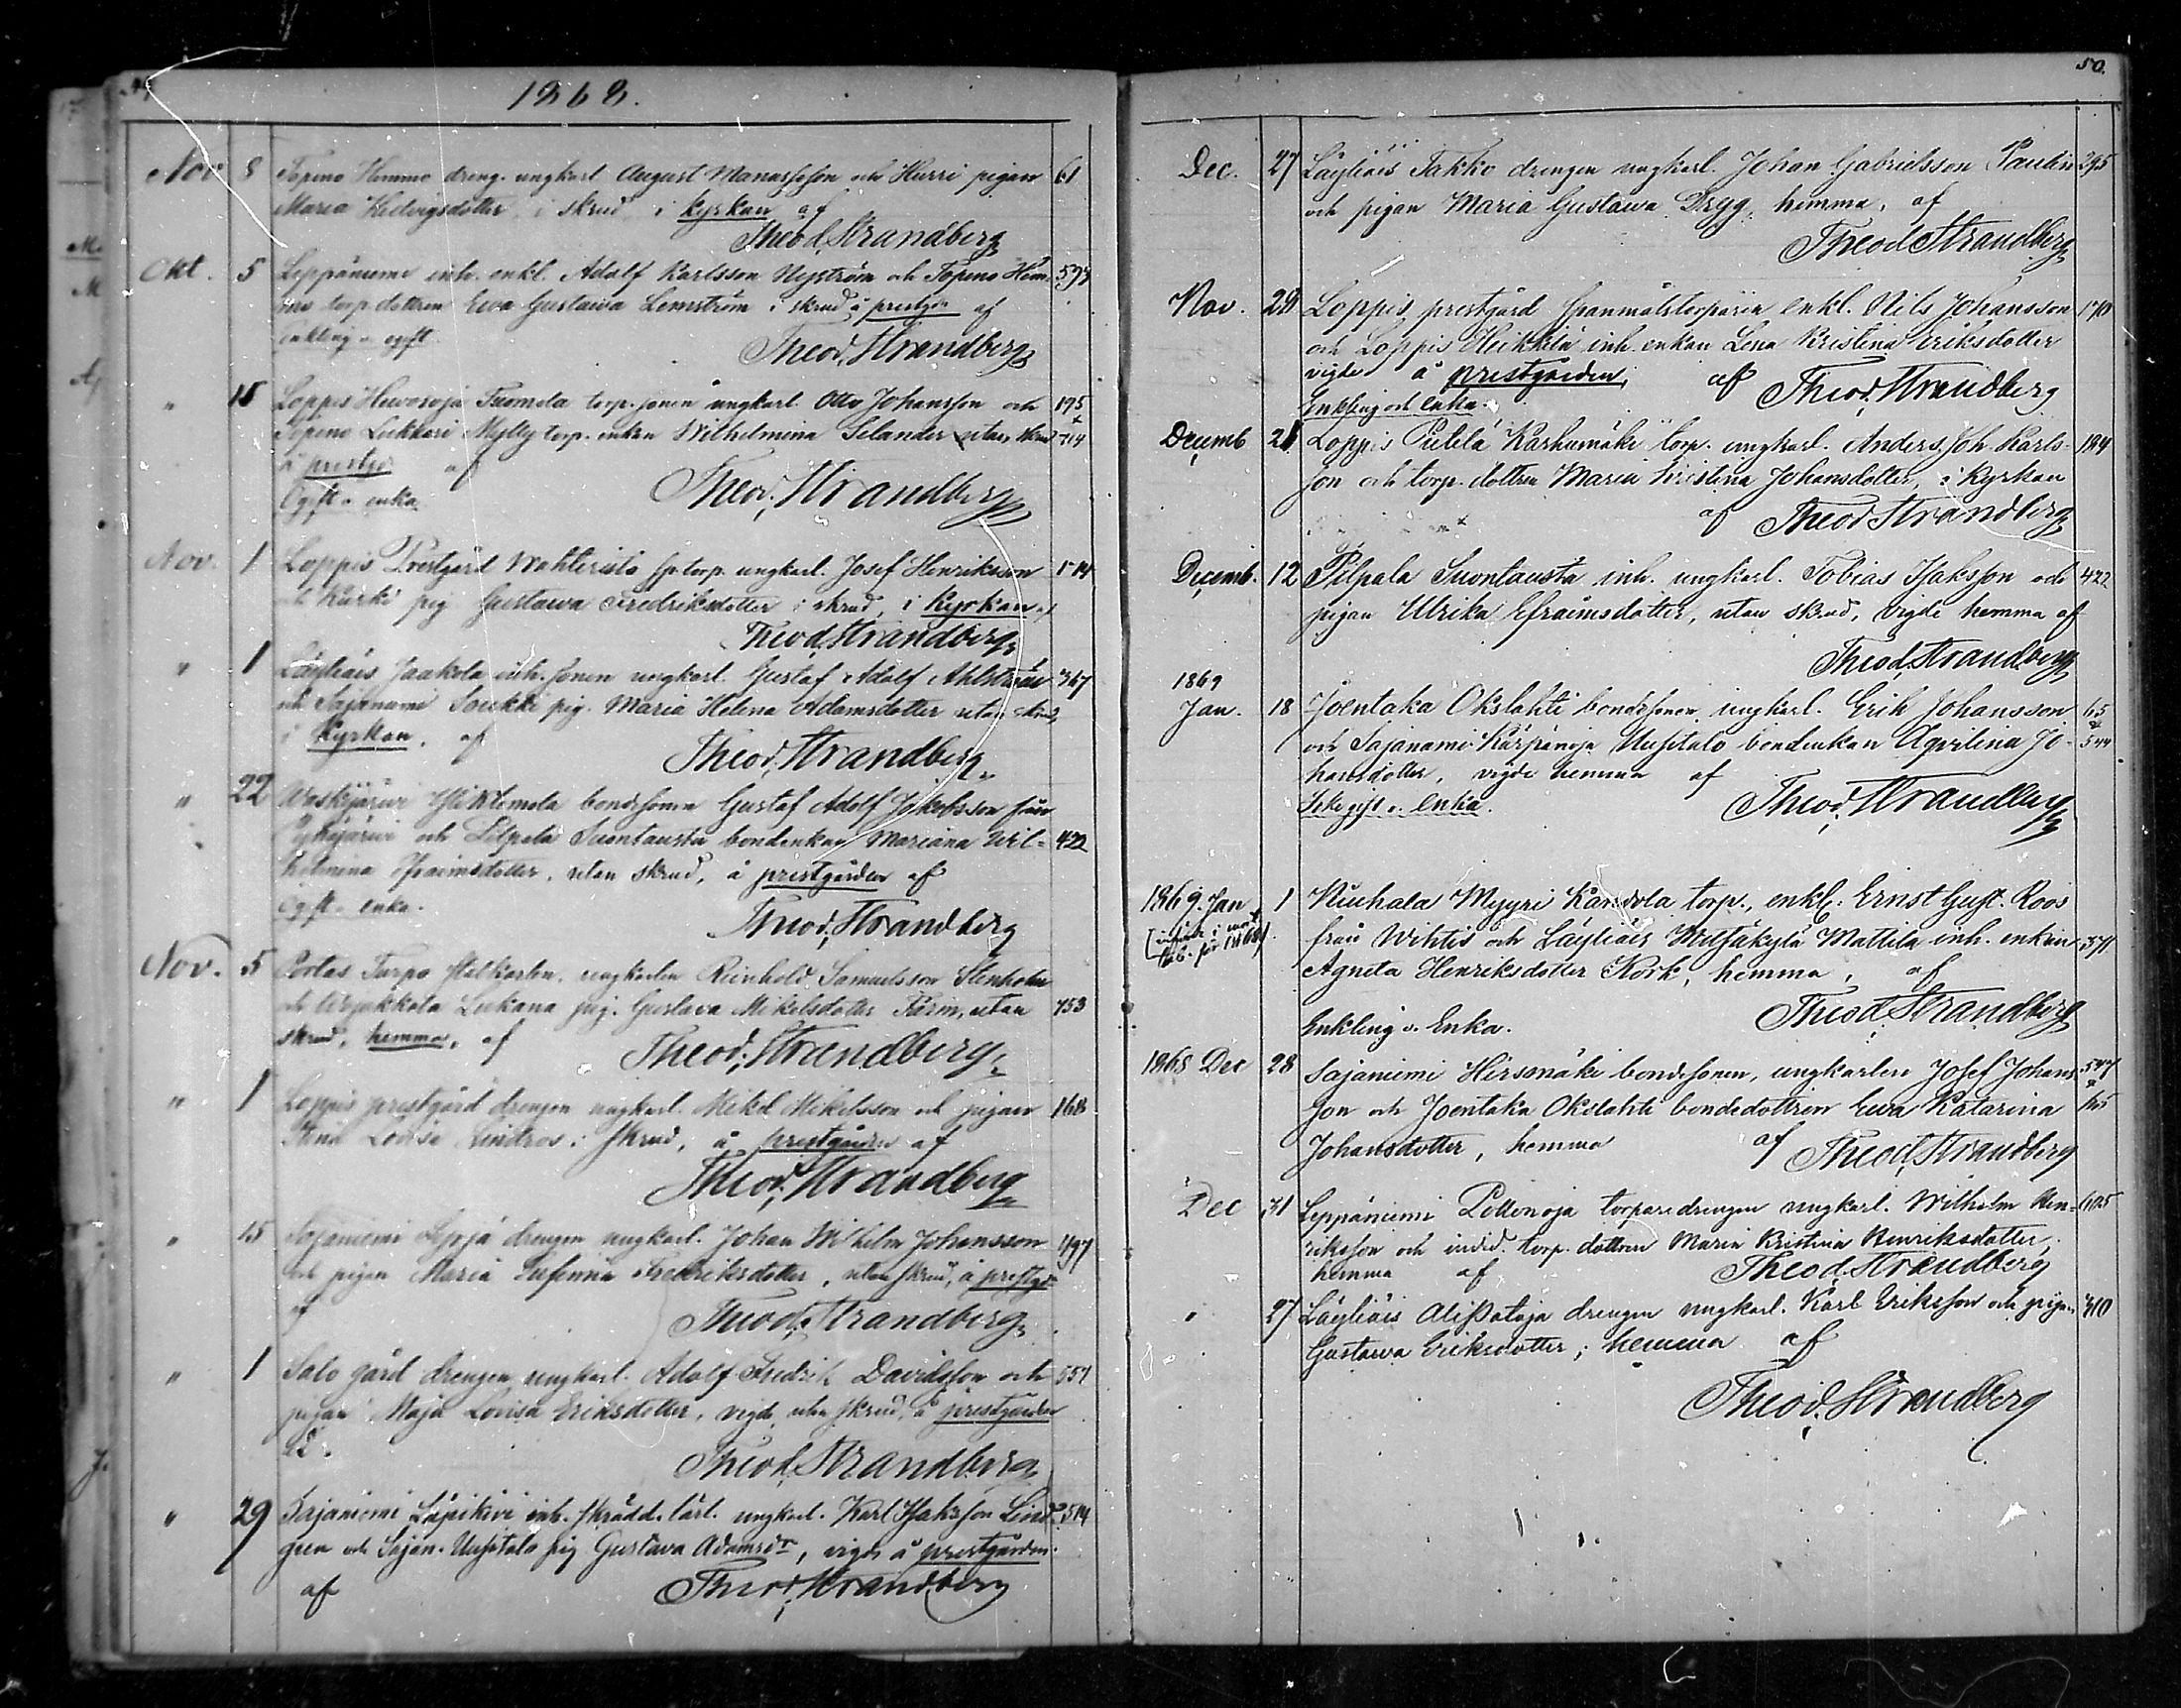 1868.
Nov 8 Topeno Hemmo dreng. ungkarl August Manassesson och Hurri pigan 61
Maria Hedvigsdotter i skrud i kyrkan af
Theod. Strandberg
Okt. 5 Leppäniemi inh. enkl. Adolf Karlsson Nyström och Topeno Hem-
mo torp. dottren Ewa Gustawa Lemström i skrud å prestg. af
Enkling o. ogift
Theod. Strandberg
" 18 Loppis Hevosoja Tuomela torp. sonen ungkarl. Otto Johansson och 195
Topeno Liekkari Mylly torp. enkan Wilhelmina Selander utan skrud 714
å prestg. af
Ogift o. enka.
Theod. Strandberg
Nov. 1 Loppis Prestgård torp. ungkarl. Josef Henriksson
och Kurki pig Gustawa Fredriksdotter i skrud, i Kyrkan af
Theod. Strandberg
" 1 Läyliäis Jaakola inh. sonen ungkarl. Gustaf Adolf Ahlström 367
och Sajaniemi Soukki pig. Maria Helena Adamsdotter utan skrud,
i Kyrkan, af
Theod. Strandberg
" 22 bondesonen Gustaf Adolf Jakobsson från
Pyhäjärvi och Pilpala Suontausta bondenkan Mariana Wil- 422
helmina Efraimsdotter, utan skrud, å prestgården af
Ogift o. enka.
Theod. Strandberg
Nov. 5 Portas Turpo stalkarlen, ungkarlen Reinhold Samuelsson Stenholm
och Leukana pig. Gustava Mikelsdotter utan 753
skrud, hemma, af
Theod. Strandberg
" 1 Loppis prestgård drengen ungkarl. Mikel Mikelsson och pigan 168
Stina Lovisa Lindros i skrud, å prestgården af
Theod. Strandberg
" 15 Sajaniemi Seppä drengen ungkarl. Johan Wilhelm Johansson 497
och pigan Maria Eufemia Fredriksdotter, utan skrud, å prestgd
af
Theod. Strandberg
" 1 Salo gård drengen ungkarl. Adolf Fredrik Davidsson och 551
pigan Maja Lovisa Eriksdotter, vigde utan skrud, å prestgården
af.
Theod. Strandberg
" 29 Sajaniemi inh. skrädd. lärl. ungkarl. Karl Isaksson Lind- 514
gren och Sajan. Uusitalo pig Gustava Adamsdr, vigde å prestgården.
af Theod. Strandberg
50.
Dec. 27 Läyliäis Takko drengen ungkarl. Johan Gabrielsson Paulin 295
och pigan Maria Gustawa Dryg, hemma, af
Theod Strandberg
Nov. 28 Loppis prestgård spanmålstorparen enkl. Nils Johansson 170
och Loppis Heikkilä inh. enkan Lena Kristina Eriksdotter
vigde å prestgården, af Theod. Strandberg
Enkling och enka.
Decemb 26 Loppis Pietilä Karhumäki torp. ungkarl. Anders Joh. Karls- 184
son och torp. dottren Maria Kristina Johansdotter, i Kyrkan
af Theod Strandberg
Decemb. 12 Pilpala Suontausta inh. ungkarl. Tobias Isaksson och 422
pigan Ulrika Efraimsdotter, utan skrud, vigde hemma af
Theod. Strandberg
1869
Jan. 18 Joentaka Okslahti bondesonen ungkarl. Erik Johansson 65
och Sajaniemi Kärpänoja Uusitalo bondenkan Agvilina Jo- 544
hansdotter, vigde hemma af
Icke gift o. Enka.
Theod. Strandberg
1869. Jan 1 Kiuhala Myyri Kandola torp., enkl. Ernst Gust. Roos
från Wihtis och Läyliäis Metsäkylä Mattila inh. enkan 371
Agneta Henriksdotter Kork, hemma, af
Theod Strandberg
Enkling o. Enka.
1868 Dec 28 Sajaniemi Hirsonäki bondesonen, ungkarlen Josef Johans- 547
son och Joentaka Okslahti bondedottren Ewa Katarina
Johansdotter, hemma af Theod. Strandberg
Dec 31 Leppäniemi Pottonoja torparedrengen ungkarl. Wilhelm Hen- 605
riksson och torp. dottren Maria Kristina Henriksdotter,
hemma af Theod. Strandberg
" 27 Läyliäis Alipataja drengen ungkarl. Karl Eriksson och pigan 310
Gustawa Eriksdotter; hemma af
Theod. Strandberg